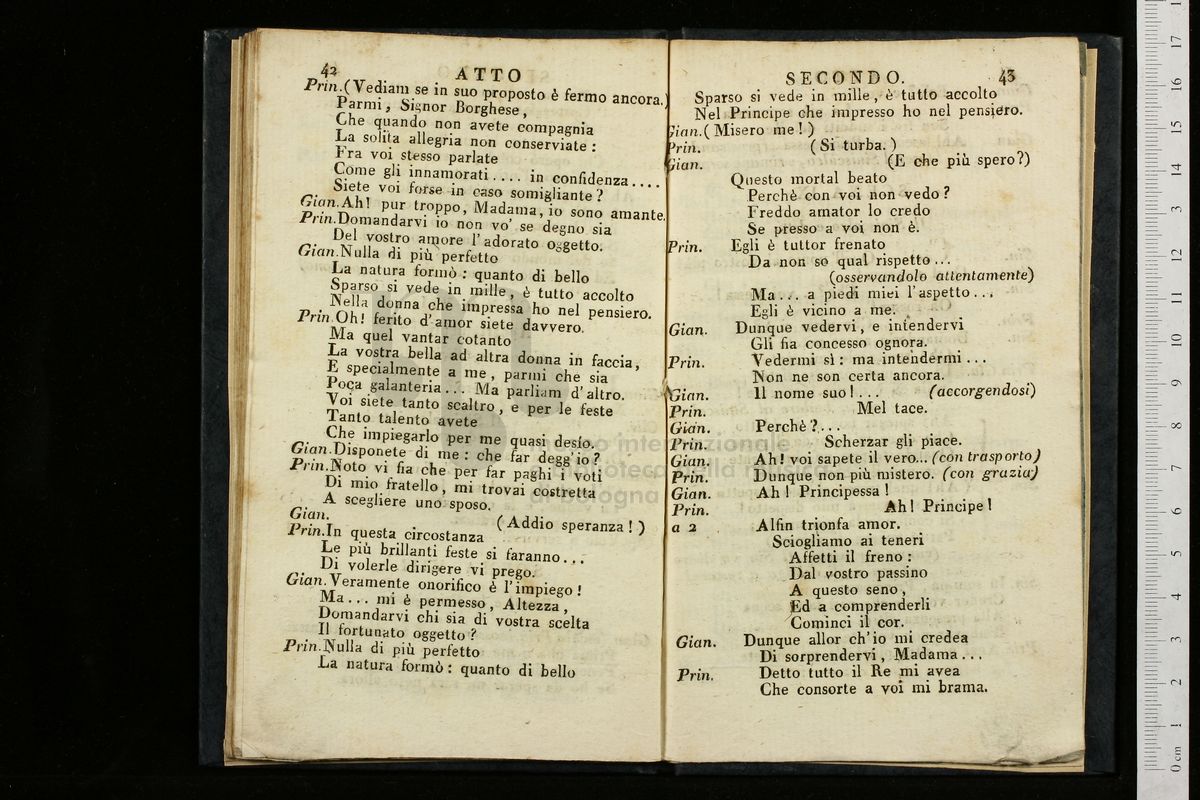 42
ATTO
Prin.(Vediam se in suo proposto è fermo ancora.)
Parmi, Signor Borghese,
Che quando non avete compagnia
La solita allegria non conserviate:
Fra voi stesso parlate
Come gli innamorati.... in confidenza....
Siete voi forse in caso somigliante?
Gian.Ah! pur troppo, Madama, io sono amante.
Prin.Domandarvi io non vo' se degno sia
Del vostro amore l'adorato oggetto.
Gian.Nulla di più perfetto
La natura formò: quanto di bello
Sparso si vede in mille, è tutto accolto
Nella donna che impressa ho nel pensiero.
Prin.Oh! ferito d'amor siete davvero.
Ma quel vantar cotanto
La vostra bella ad altra donna in faccia,
E specialmente a me, parmi che sia
Poca galanteria... Ma parliam d'altro.
Voi siete tanto scaltro, e per le feste
Tanto talento avete
Che impiegarlo per me quasi desío.
Gian.Disponete di me: che far degg'io?
Prin.Noto vi fia che per far paghi i voti
Di mio fratello, mi trovai costretta
A scegliere uno sposo.
Gian. (Addio speranza!)
Prin.In questa circostanza
Le più brillanti feste si faranno...
Di volerle dirigere vi prego.
Gian.Veramente onorifico è l'impiego!
Ma... mi è permesso, Altezza,
Domandarvi chi sia di vostra scelta
Il fortunato oggetto?
Prin.Nulla di più perfetto
La natura formò: quanto di bello
SECONDO. 43
Sparso si vede in mille, è tutto accolto
Nel Principe che impresso ho nel pensiero.
Gian.(Misero me!)
Prin. (Si turba.)
Gian. (E che più spero?)
Questo mortal beato
Perchè con voi non vedo?
Freddo amator lo credo
Se presso a voi non è.
Prin. Egli è tuttor frenato
Da non so qual rispetto...
(osservandolo attentamente)
Ma... a piedi miei l'aspetto...
Egli è vicino a me.
Gian. Dunque vedervi, e intendervi
Gli fia concesso ognora.
Prin. Vedermi sì: ma intendermi...
Non ne son certa ancora.
Gian. Il nome suo!... (accorgendosi)
Prin. Mel tace.
Gian. Perchè?...
Prin. Scherzar gli piace.
Gian. Ah! voi sapete il vero... (con trasporto)
Prin. Dunque non più mistero. (con grazia)
Gian. Ah! Principessa!
Prin. Ah! Principe!
a 2 Alfin trionfa amor.
Sciogliamo ai teneri
Affetti il freno:
Dal vostro passino
A questo seno,
Ed a comprenderli
Cominci il cor.
Gian. Dunque allor ch'io mi credea
Di sorprendervi, Madama...
Prin. Detto tutto il Re mi avea
Che consorte a voi mi brama.